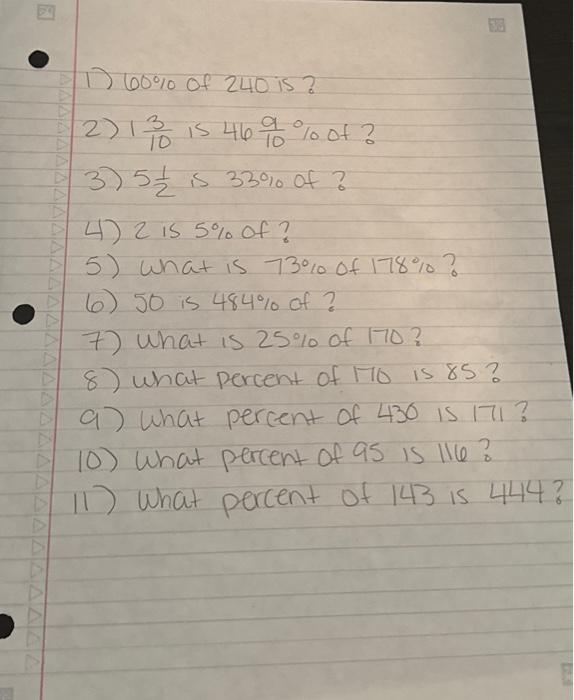 1) 60% of 240 is ?
2) 1 3/10 is 46 9/10 % of ?
3) 5 1/2 is 33% of ?
4) 2 is 5% of ?
5) what is 73% of 178% ?
6) 50 is 484% of ?
7) what is 25% of 170 ?
8) what percent of 170 is 85 ?
9) what percent of 430 is 171 ?
10) what percent of 95 is 116 ?
11) what percent of 143 is 444 ?